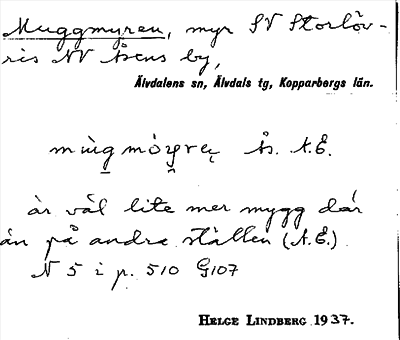 Muggmyren, myr SV Storlöv-
ris NV Åsens by,
Älvdalens sn, Älvdals tg, Kopparbergs län.
Ås. A.E.
är väl lite mer mygg där
än på andra ställen (A.E.)
N 5 i p. 510 G107
HELGE LINDBERG 1937.